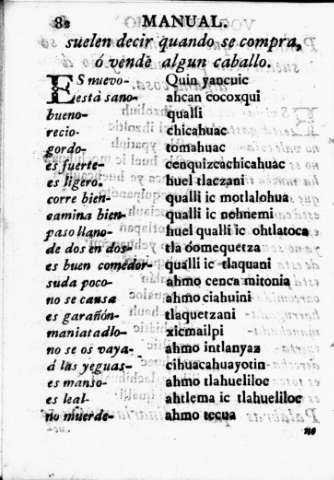 82 MANUAL.
suelen decir quando se compra,
ó vende algun caballo.
ES nuevo- Quin yancuic
està sano- ahcan cocoxqui
bueno- qualli
recio- chicahuac
gordo- tomahuac
es fuerte- cenquizcachicahuac
es ligero- huel tlaczani
corre bien- qualli ic motlalohua
camina bien- qualli ic nehnemi
paso llano- huel qualli ic ohtlatoca
de dos en dos- tla omequetza
es buen comedor- qualli ic tlaquani
suda poco- ahmo cenca mitonia
no se causa ahmo ciahuini
es garañón- tlaquetzani
maniatadlo- xicmailpi
no se os vaya- ahmo intlanyaz
á las yeguas- cihuacahuayotin
es manso- ahmo tlahueliloc
es leal- ahtlema ic tlahueliloc
no muerde- ahmo tecua
no